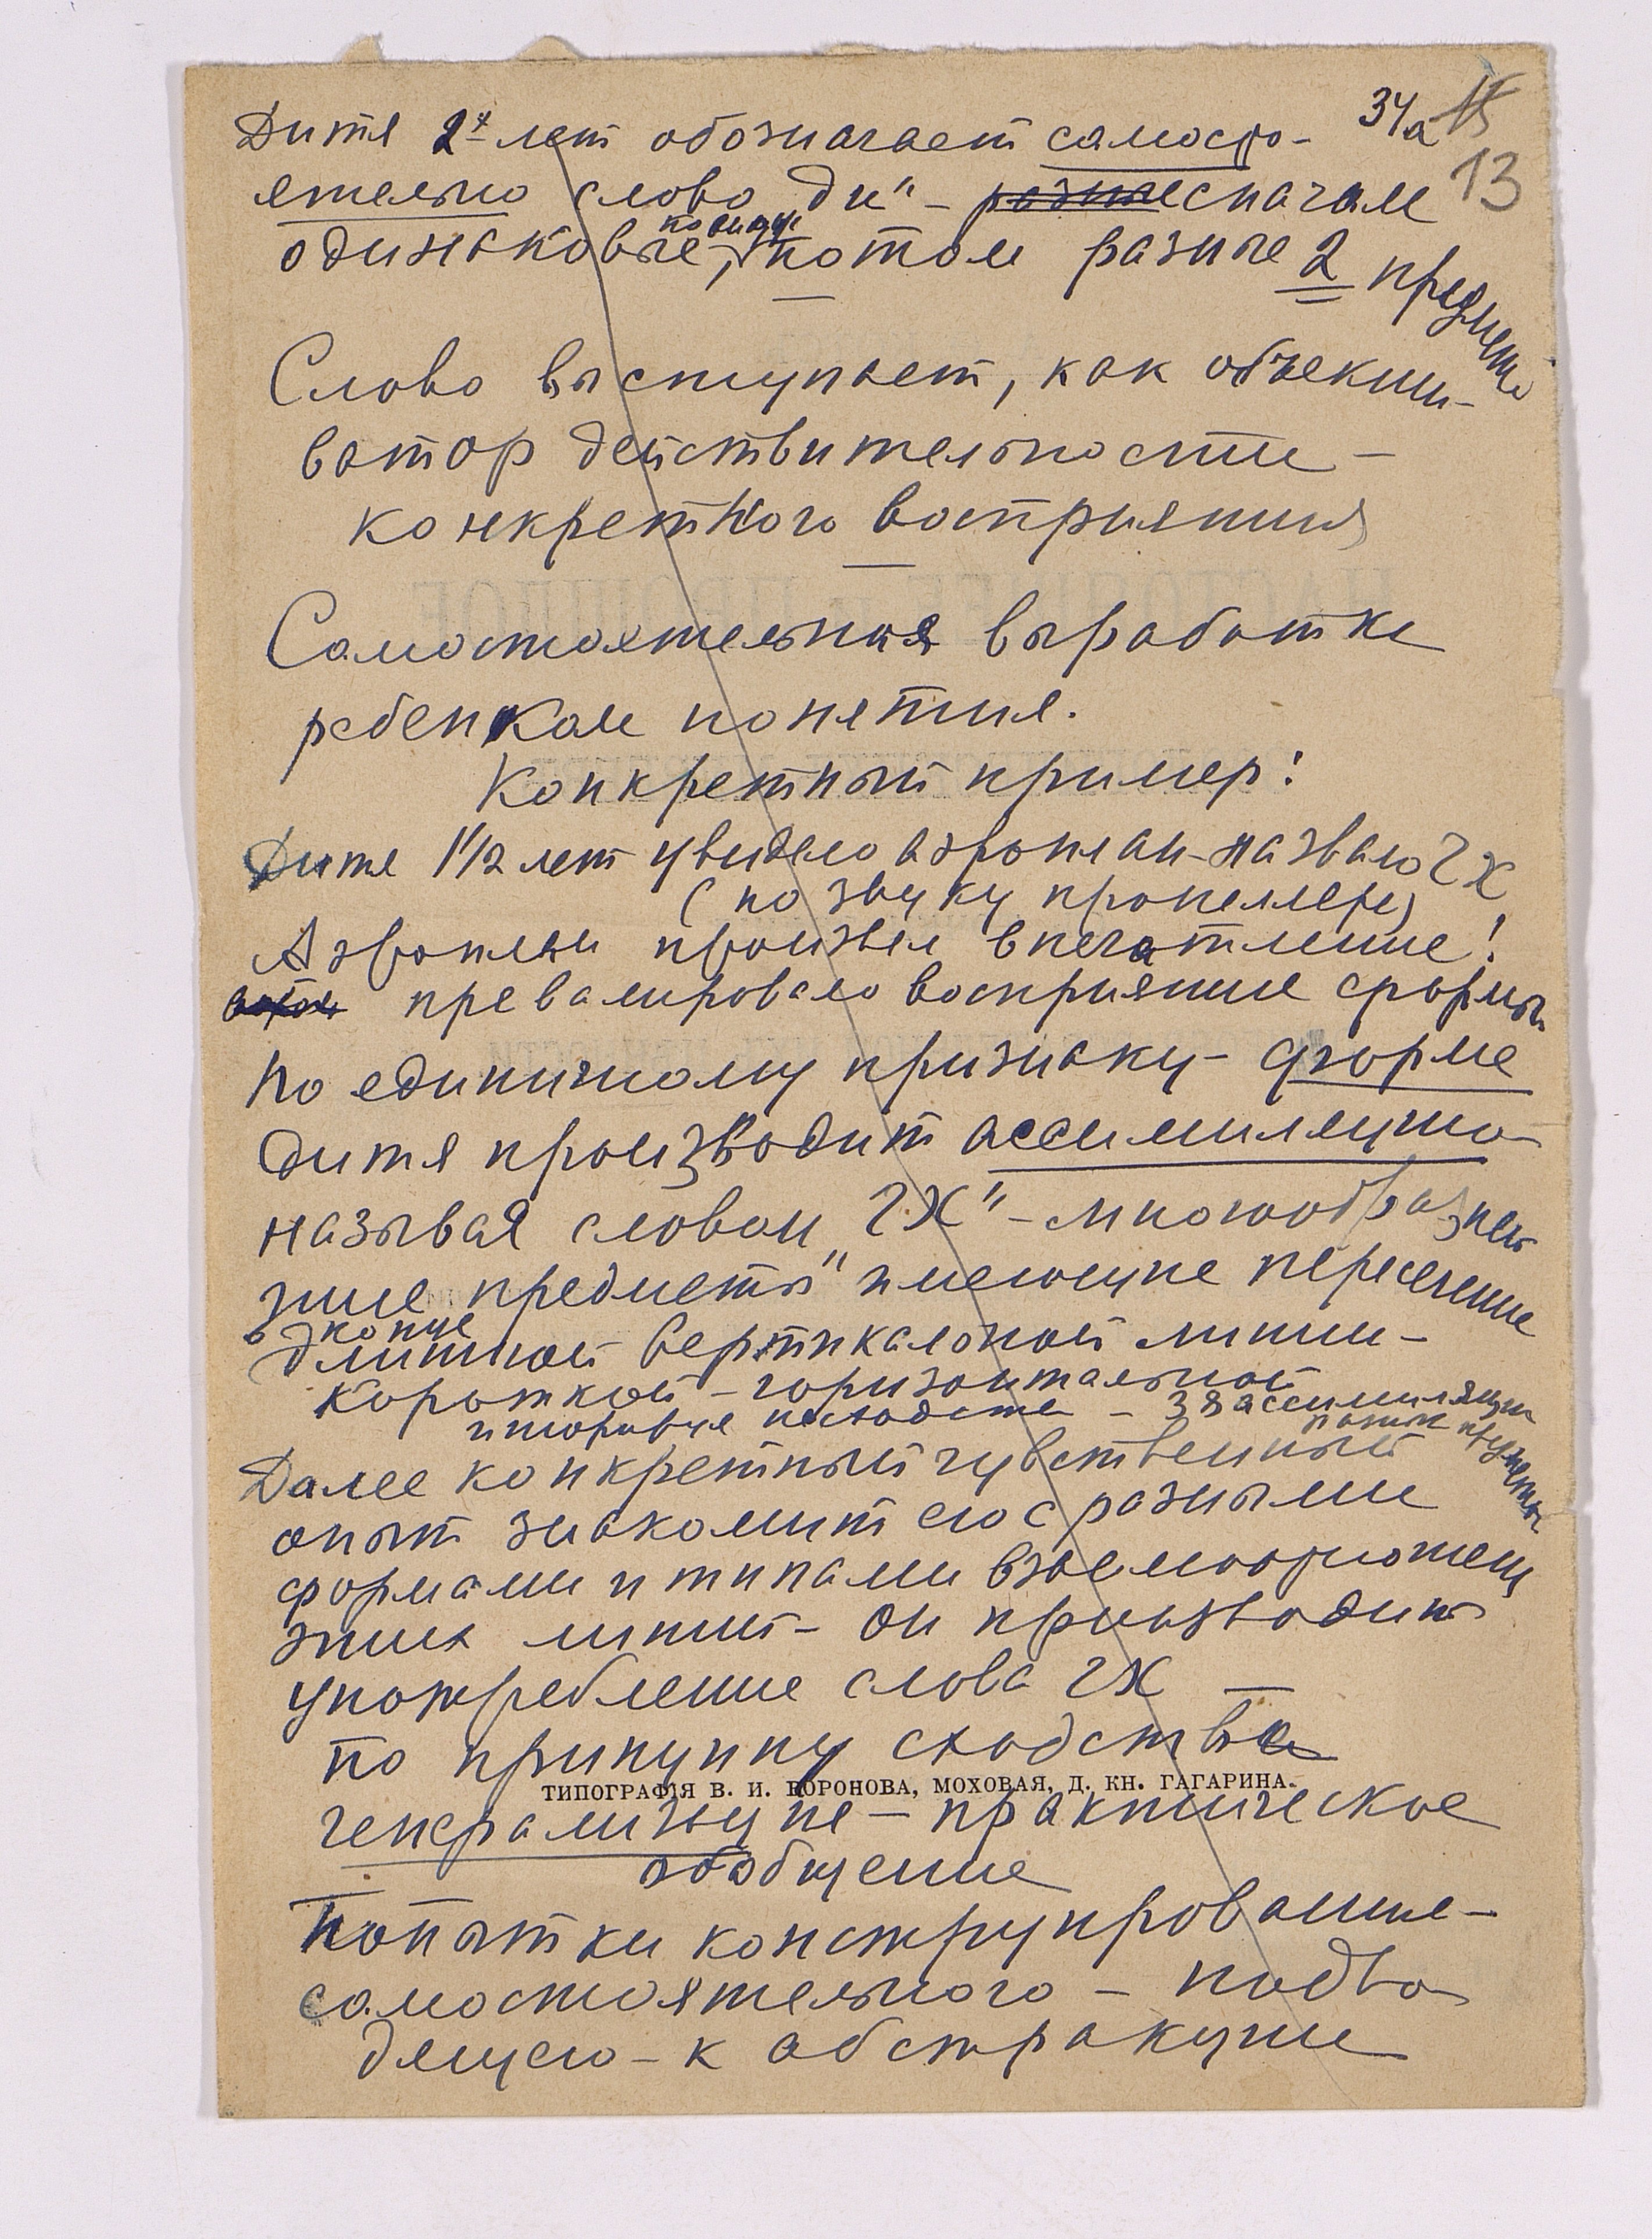 34а 15
13
Дитя 2х лет обозначает самосто-
ятельно слово „ди" – разные сначала
одинаковые, по виду потом разные 2 предмета
Слово выступает, как объекти-
ватор действительности –
конкретного восприятия
Самостоятельная выработка
ребенком понятия.
Конкретный пример:
Дитя 1 1/2 лет увидело аэроплан – назвало ЧХ
(по звуку пропеллера)
Аэроплан произвел впечатление!
превалировало восприятие формы
По единичному признаку – форме
дитя производит ассимиляцию
называя словом „ЧХ" – многообразней
шие предметы имеющие пересечение
в конце
длинной вертикальной линии –
короткой – горизонтальной
игнорируя несходства – ассимиляции
Далее конкретный чувственный
опыт знакомит его с разными
формами и типами взаимоотношен
этих линий – он производит
употребление слова ЧХ –
по принципу сходства
ТИПОГРАФІЯ В. И. ВОРОНОВА, МОХОВАЯ, Д. КН. ГАГАРИНА.
генерализация – практическое
обобщение
Попытки конструирования –
самостоятельного – подво
дящего – к абстракции